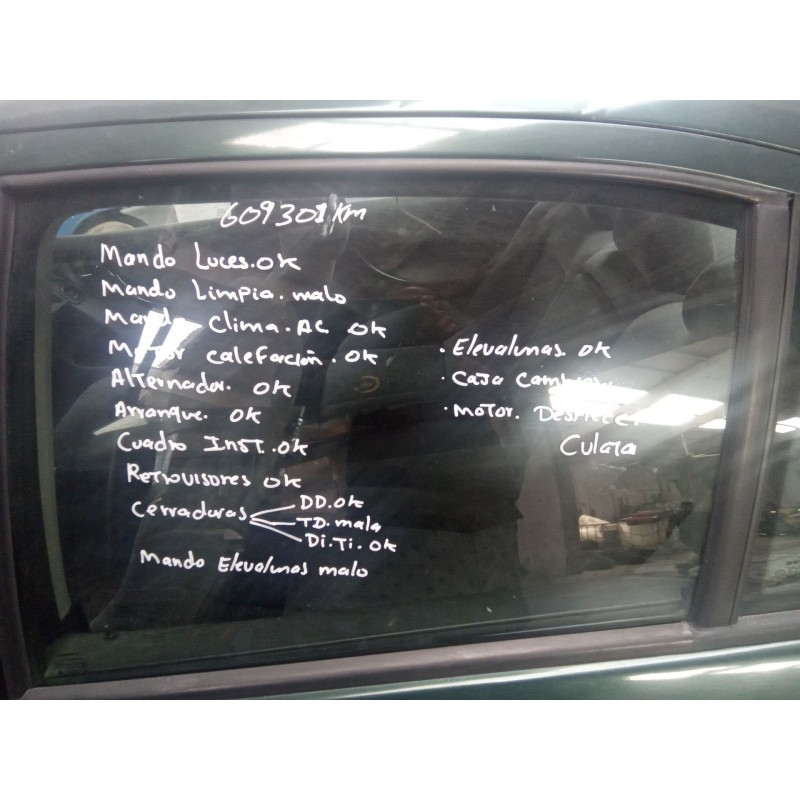 609301 Km
Mando Luces. ok
Mando Limpia. malo
Mando Clima. AC ok
Motor calefación. ok
Alternador. ok
Arranque. ok
Cuadro Inst. ok
Retrovisores ok
Cerraduras
DD. ok
TD. mala
Di. Ti. ok
Mando Elevalunas malo
· Elevalunas. ok
· Caja Cambios
· Motor.
Culata